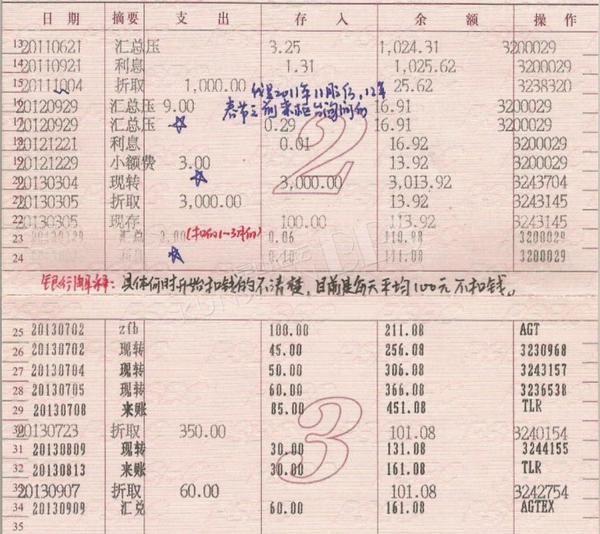 日期 摘要 支出 存入 余额 操作
13 20110621 汇总压 3.25 1,024.31 3200029
14 20110921 利息 1.31 1,025.62 3200029
15 20111004 折取 1,000.00 25.62 3238320
16 20120929 汇总压 9.00 16.91 3200029
17 20120929 汇总压 0.29 16.91 3200029
18 20121221 利息 0.01 16.92 3200029
19 20121229 小额费 3.00 13.92 3200029
20 20130304 现转 3,000.00 3,013.92 3243704
21 20130305 折取 3,000.00 13.92 3243145
22 20130305 现存 100.00 113.92 3243145
23 汇总 3.00 (扣的1-3月份) 0.06 110.98 3200029
24 0.10 111.08 3200029
银行解释: 具体何时开始扣钱的不清楚,目前是每天平均100元不扣钱。
25 20130702 zfb 100.00 211.08 AGT
26 20130702 现转 45.00 256.08 3230968
27 20130704 现转 50.00 306.08 3243157
28 20130705 现转 60.00 366.08 3236538
29 20130708 来账 85.00 451.08 TLR
30 20130723 折取 350.00 101.08 3240154
31 20130809 现转 30.00 131.08 3244155
32 20130813 来账 30.00 161.08 TLR
33 20130907 折取 60.00 101.08 3242754
34 20130909 汇兑 60.00 161.08 AGTEX
35
2
3